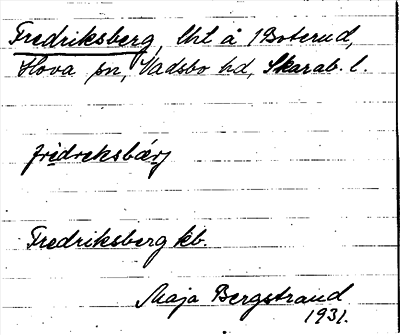 Fredriksberg, lht å 1 Boterud,
Hova sn, Vadsbo hd, Skarab. l.
fredreksbærj
Fredriksberg kb.
Maja Bergstrand
1931.